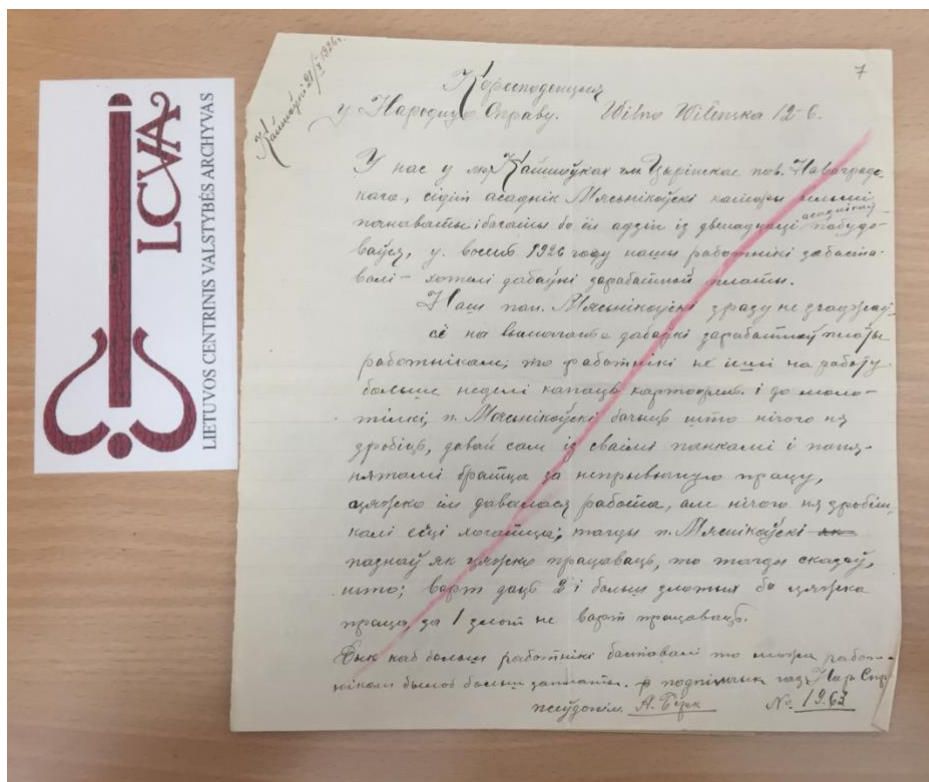 LCVA
LIETUVOS CENTRINIS VALSTYBĖS ARCHYVAS
7
Карэсподэнцыя
у Народную Справу. Wilno Wileńska 12-6.
У нас у м. Кашоўках гм. Цырінскае пов. Навагрудс-
кага, сідіт асаднік Мясьнікоўскі каторы
і багаты бо ён адзін із двенадцаці асаднікаў пабудо-
ваўся, у восень 1926 году нашы работнікі забаста-
валі – хотелі дабаўкі заработнай платы.
Наш пан. Мясьнікоўскі зразу не згаджаў-
сё на дабаўкі заработнай платы
работнікам; то работнікі не ішлі на работу
больше неделі капаць картофель і до моло-
тілкі, п. Мясьнікоўскі бачыць што нічого ня
зробіць, давай сам із сваімі панкамі і
братца за непрывычную працу,
цяжко ім давалася работа, але нічого ня зробіш,
калі есці хочатца; тагды п. Мясьнікоўскі як
пазнаў як цяжко працаваць, то тагды сказаў,
што; варт даць 2 і больш злотых бо цяжка
праца, за 1 злот не варт працаваць.
каб больш работнікі баставалі то можа работ-
нікам было б больш заплаты. подпішчык газ. Нар. Спр.
псеўдонім А. Бірк № 1963